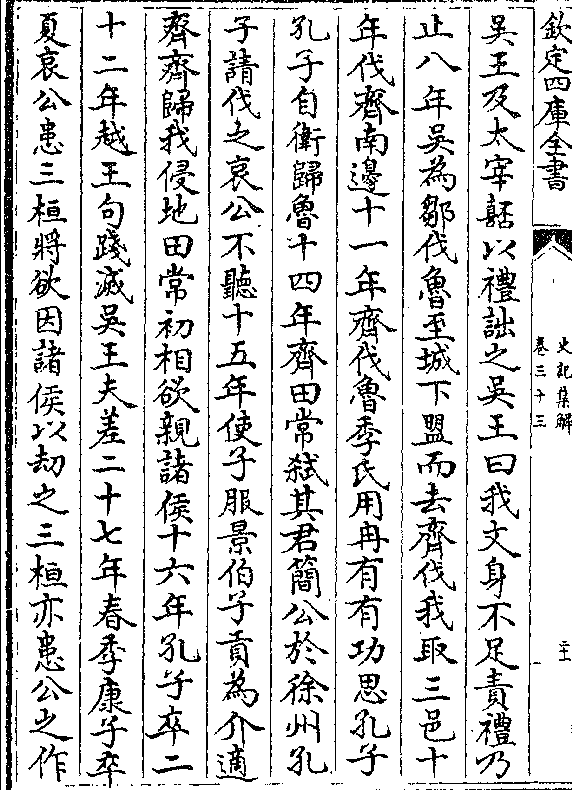 欽定四庫全書
史記集解
卷三十三
吳王及太宰嚭以禮詘之吳王曰我文身不足責禮乃
止八年吳為鄒伐魯至城下盟而去齊伐我取三邑十
年伐齊南邊十一年齊伐魯季氏用冉有有功思孔子
孔子自衛歸魯十四年齊田常弑其君簡公於徐州孔
子請伐之哀公不聽十五年使子服景伯子貢為介適
齊齊歸我侵地田常初相欲親諸侯十六年孔子卒二
十二年越王句踐滅吳王夫差二十七年春季康子卒
夏哀公患三桓將欲因諸侯以劫之三桓亦患公之作